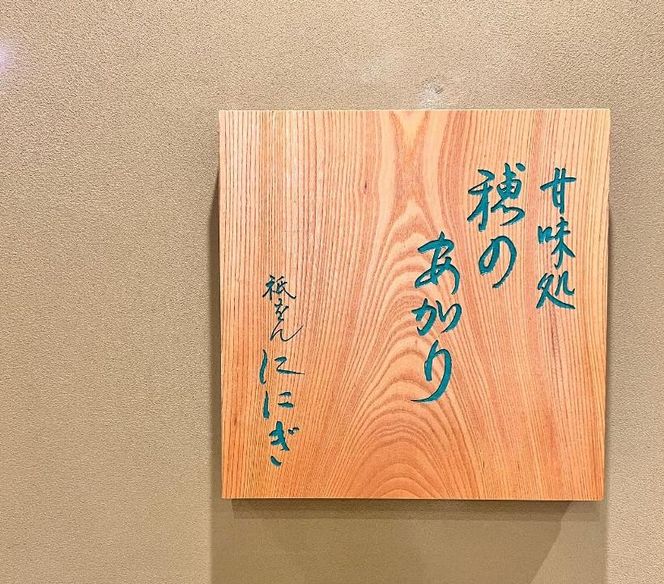 甘味処
穂の
あかり
祇をんににぎ